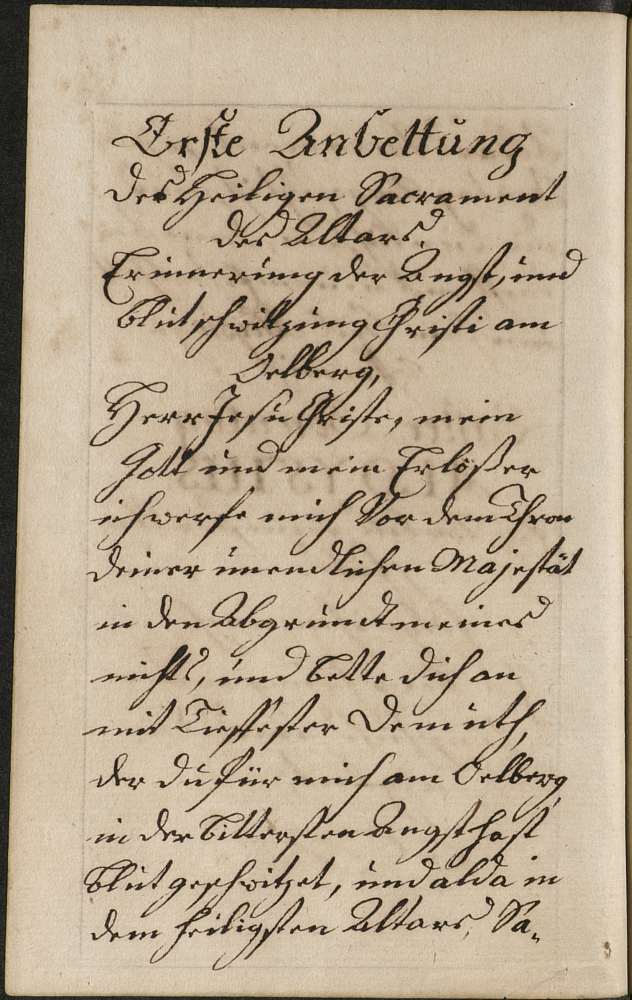 Erste Anbettung
des Heiligen Sacrament
des Altars,
Erinnerung der Angst, und
blutschwitzung Christi am
Oelberg,
Herr Jesu Christe, mein
Gott und mein Erlößer
ich werfe mich Vor dem Thron
deiner unendlichen Majestät
in den Abgrundt meines
nichts, und bette dich an
mit Tieffester Demuth,
der du für mich am Oelberg
in der bittersten Angst hast
blut geschwitzet, und alda in
dem heiligsten Altars, Sa„